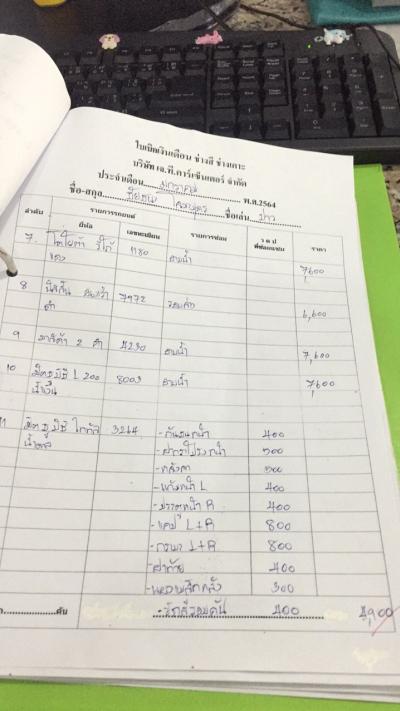 ใบเบิกเงินเดือน ช่างสี ช่างเคาะ
บริษัท เจ.ที.คาร์เซ็นเตอร์ จำกัด
ประจำเดือน.....มกราคม.....พ.ศ.2564
ชื่อ-สกุล..........ชื่อเล่น
ลำดับ รายการรถยนต์ รายการซ่อม ว ด ป ราคา
ยี่ห้อ เลขทะเบียน
7. โตโยต้า วีโก้ 1180 สามน้ำ 7600
แดง
8 นิสสัน 7972 6,600
ดำ
9 มาสด้า 2 ดำ 4230 สามน้ำ 7,600
10 มิตซูบิชิ L 200 8003 สามน้ำ 7600
น้ำเงิน
11 มิตซูบิชิ 3264 -กันชนหน้า 400
-ฝากระโปรงหน้า 500
-หลังคา 500
-แก้มหน้า L 400
-ประตูหน้า R 400
-แคป L+R 800
- L+R 800
-ฝาท้าย 400
300
400 4,900
คัน